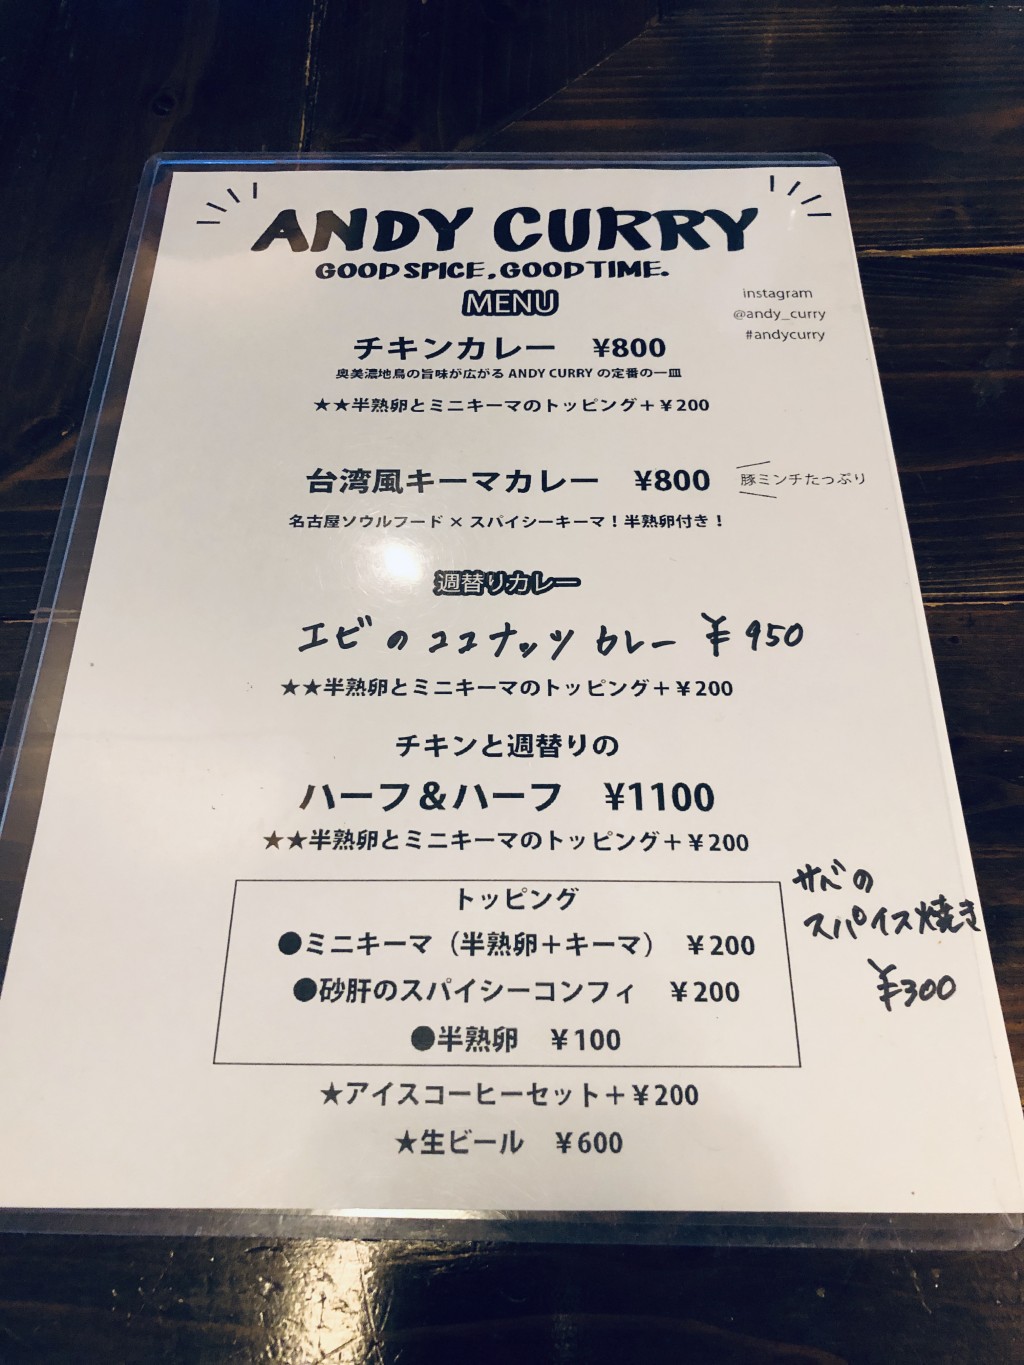 ANDY CURRY
GOOD SPICE, GOOD TIME.
MENU
instagram
@andy_curry
#andycurry
チキンカレー ¥800
奥美濃地鳥の旨味が広がる ANDY CURRY の定番の一皿
★★半熟卵とミニキーマのトッピング+¥200
台湾風キーマカレー ¥800
豚ミンチたっぷり
名古屋ソウルフード × スパイシーキーマ!半熟卵付き!
週替りカレー
エビのココナッツカレー ¥950
★★半熟卵とミニキーマのトッピング+¥200
チキンと週替りの
ハーフ&ハーフ ¥1100
★★半熟卵とミニキーマのトッピング+¥200
トッピング
●ミニキーマ(半熟卵+キーマ) ¥200
●砂肝のスパイシーコンフィ ¥200
●半熟卵 ¥100
サバの
スパイス焼き
¥300
★アイスコーヒーセット+¥200
★生ビール ¥600